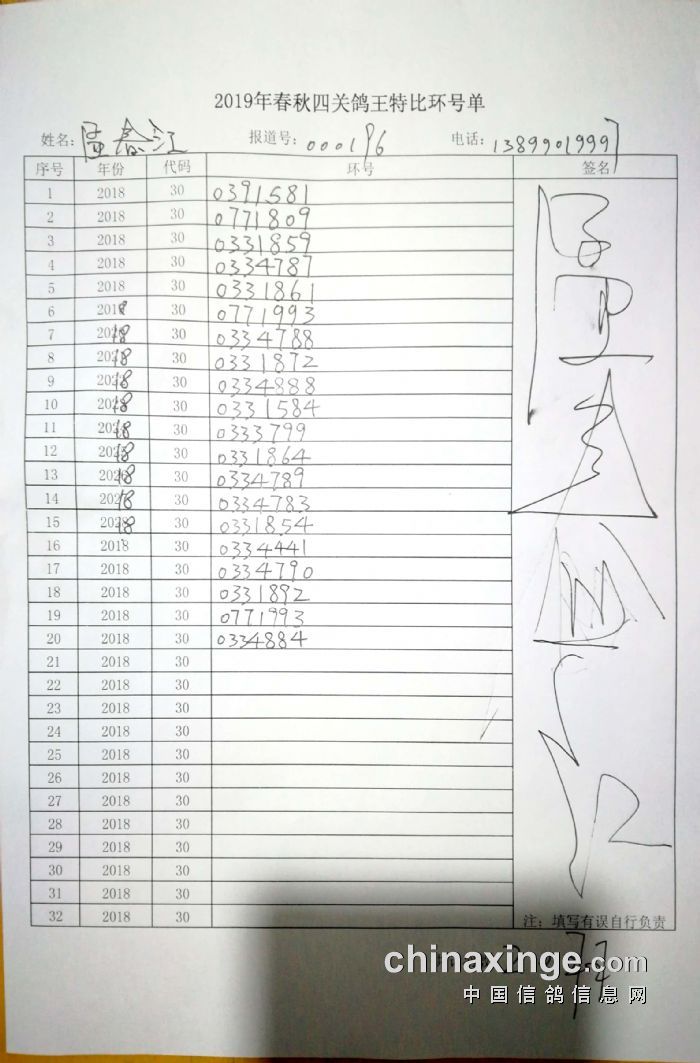 2019年春秋四关鸽王特比环号单
姓名: 春江 报道号: 000196 电话: 13899019997
序号 年份 代码 环号 签名
1 2018 30 0391581
2 2018 30 0771809
3 2018 30 0331859
4 2018 30 0334787
5 2018 30 0331861
6 2018 30 0771993
7 2018 30 0334788
8 2018 30 0331872
9 2018 30 0334888
10 2018 30 0331584
11 2018 30 0333799
12 2018 30 0331864
13 2018 30 0334789
14 2018 30 0334783
15 2018 30 0331854
16 2018 30 0334441
17 2018 30 0334790
18 2018 30 0331892
19 2018 30 0771993
20 2018 30 0334884
21 2018 30
22 2018 30
23 2018 30
24 2018 30
25 2018 30
26 2018 30
27 2018 30
28 2018 30
29 2018 30
30 2018 30
31 2018 30
32 2018 30
注: 填写有误自行负责
chinaxinge.com
中国信鸽信息网